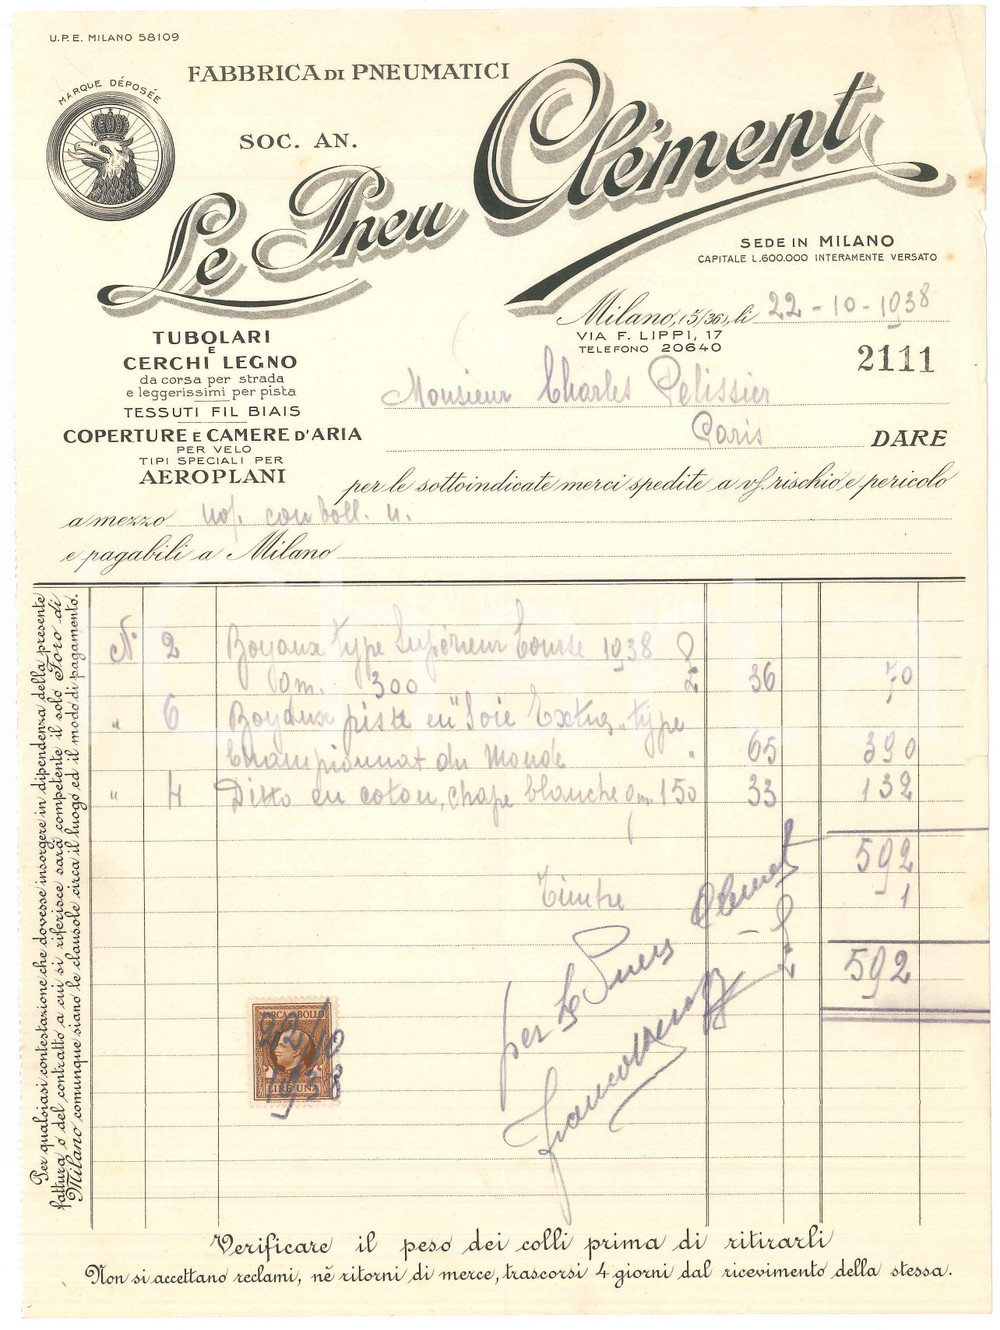 U.P.E. MILANO 58109
MARQUE DÉPOSÉE
FABBRICA DI PNEUMATICI
SOC. AN.
Le Pneu Clément
SEDE IN MILANO
CAPITALE L.600.000 INTERAMENTE VERSATO
Milano, (5/36), li 22-10-1938
VIA F. LIPPI, 17
TELEFONO 20640
2111
TUBOLARI
E
CERCHI LEGNO
da corsa per strada
e leggerissimi per pista
TESSUTI FIL BIAIS
COPERTURE E CAMERE D'ARIA
PER VELO
TIPI SPECIALI PER
AEROPLANI
Monsieur Charles Pelissier
Paris DARE
per le sottoindicate merci spedite a vs. rischio e pericolo
a mezzo
e pagabili a Milano
Per qualsiasi contestazione che dovesse insorgere in dipendenza della presente
fattura o del contratto a cui si riferisce sarà competente il solo Foro di
Milano comunque siano le clausole circa il luogo ed il modo di pagamento.
N° 2 Boyaux type Supérieur Course 1938
gm. 300 36 70
" 6 Boyaux piste en "Soie Extra" type
Championnat du Monde " 65 390
" 4 Ditto en coton, chape blanche gm. 150 33 132
592
Timbre 1
592
per Le Pneu Clément
MARCA DA BOLLO
22/10
1938
LIRE UNA
Verificare il peso dei colli prima di ritirarli
Non si accettano reclami, nè ritorni di merce, trascorsi 4 giorni dal ricevimento della stessa.